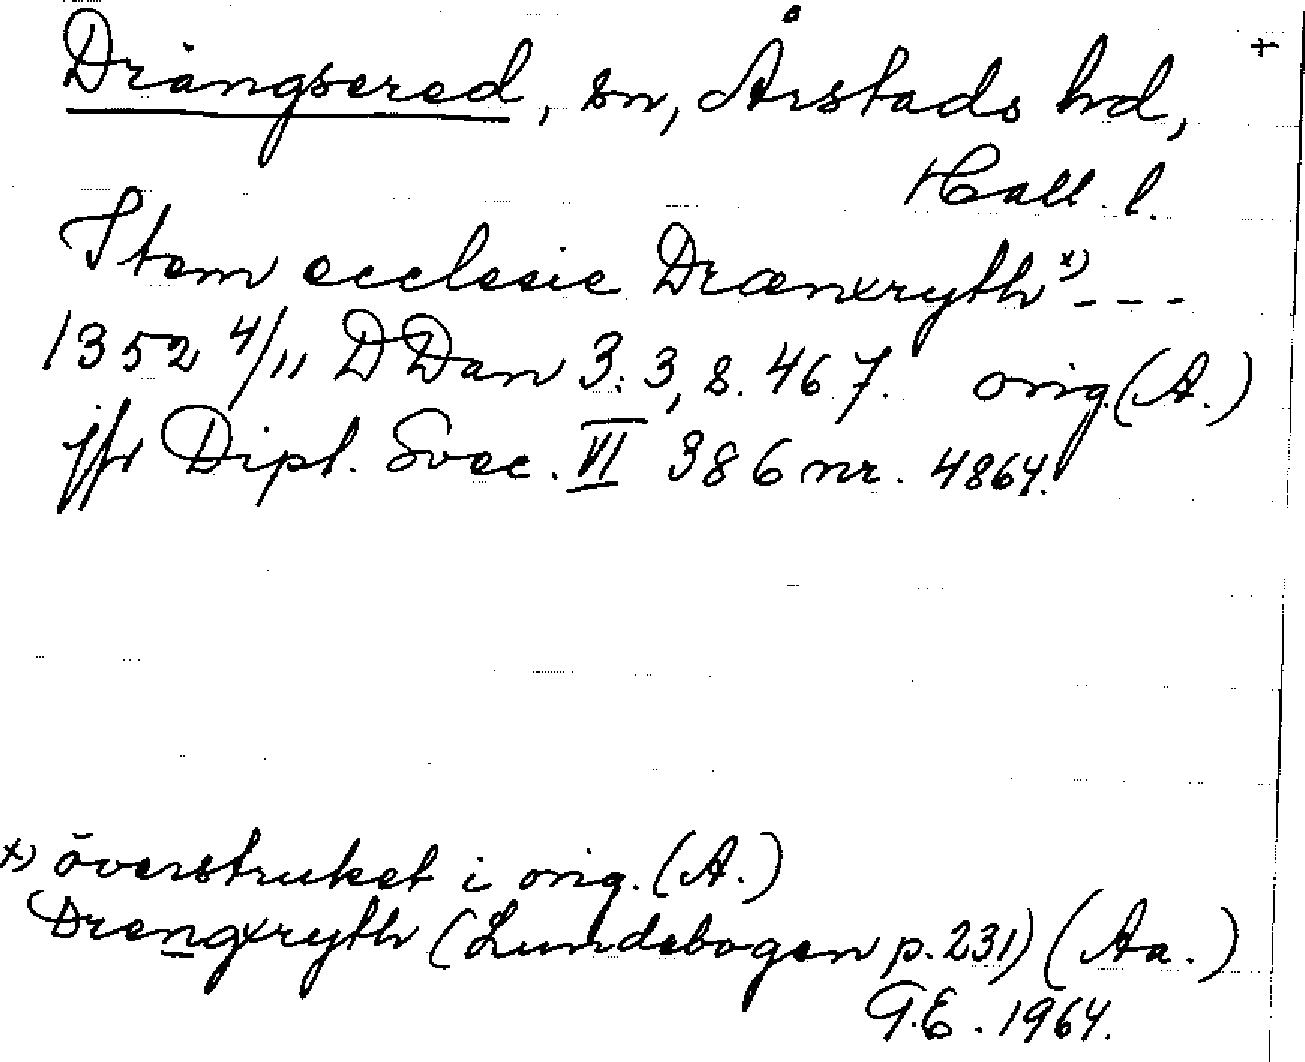 Drängsered, sn, Årstads hd, +
Hall. l.
Item ecclesie Drænxryth x) - - -
1352 4/11 DDan 3:3, s. 467. orig. (A.)
jfr Dipl. Svec. VI 386 nr. 4864.
x) överstruket i orig. (A.)
Drengxryth (Lundebogen p. 231) (Aa.)
G.E. 1964.